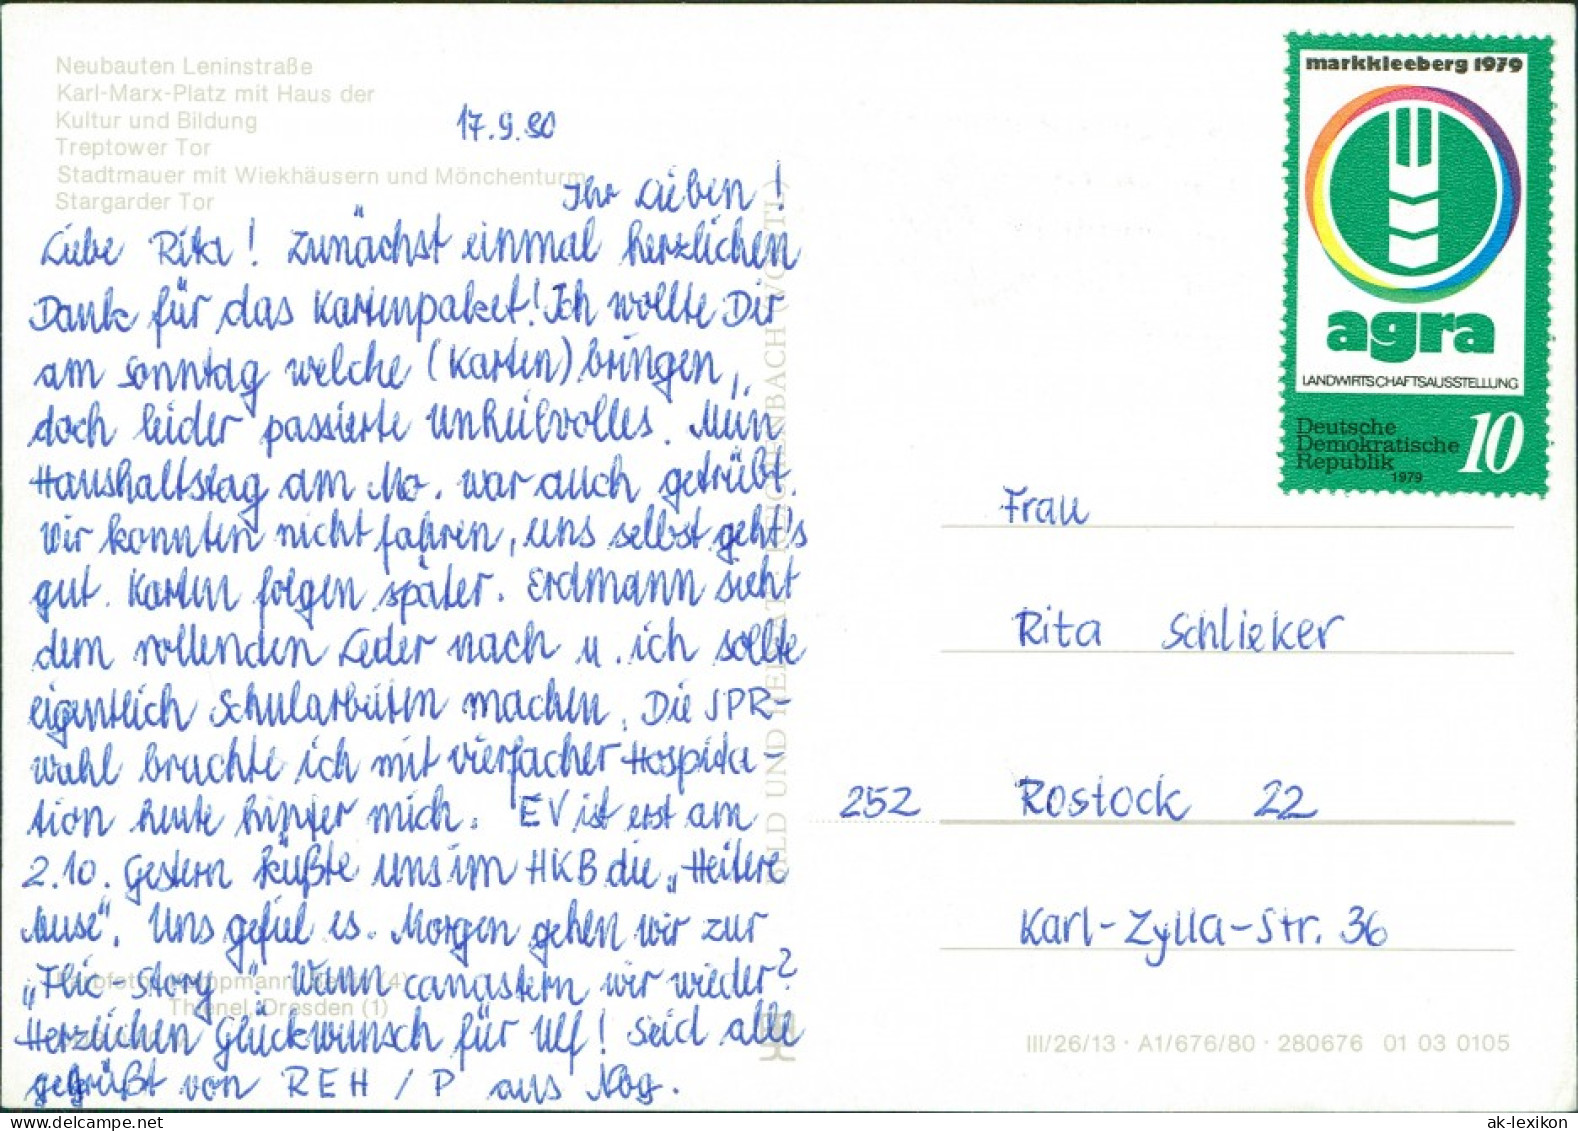 Neubauten Leninstraße
Karl-Marx-Platz mit Haus der
Kultur und Bildung
Treptower Tor
Stadtmauer mit Wiekhäusern und Mönchenturm
Stargarder Tor
17.9.80
Ihr Lieben!
Liebe Rita! Zunächst einmal herzlichen
Dank für das Kartenpaket! Ich wollte Dir
am Sonntag welche (Karten) bringen,
doch leider passierte Unheilvolles. Mein
Haushaltstag am Mo. war auch getrübt.
Wir konnten nicht fahren, uns selbst geht's
gut. Karten folgen später. Erdmann sieht
dem rollenden Leder nach u. ich sollte
eigentlich Schularbeiten machen. Die SPR-
wahl brachte ich mit vierfacher Hospita-
tion heute hinter mich. EV ist erst am
2.10. Gestern küßte uns im HKB die „Heitere
Muse“. Uns gefiel es. Morgen gehen wir zur
„Flic-Story“. Wann canastern wir wieder?
Herzlichen Glückwunsch für Ulf! Seid alle
gegrüßt von REH / P aus Nbg.
Thienel, Dresden (1)
BILD UND HEIMAT REICHENBACH (VOGTL)
markkleeberg 1979
agra
LANDWIRTSCHAFTSAUSSTELLUNG
Deutsche
Demokratische
Republik
1979
10
Frau
Rita Schlieker
252 Rostock 22
Karl-Zylla-Str. 36
III/26/13 · A1/676/80 · 280676 01 03 0105
ak-lexikon